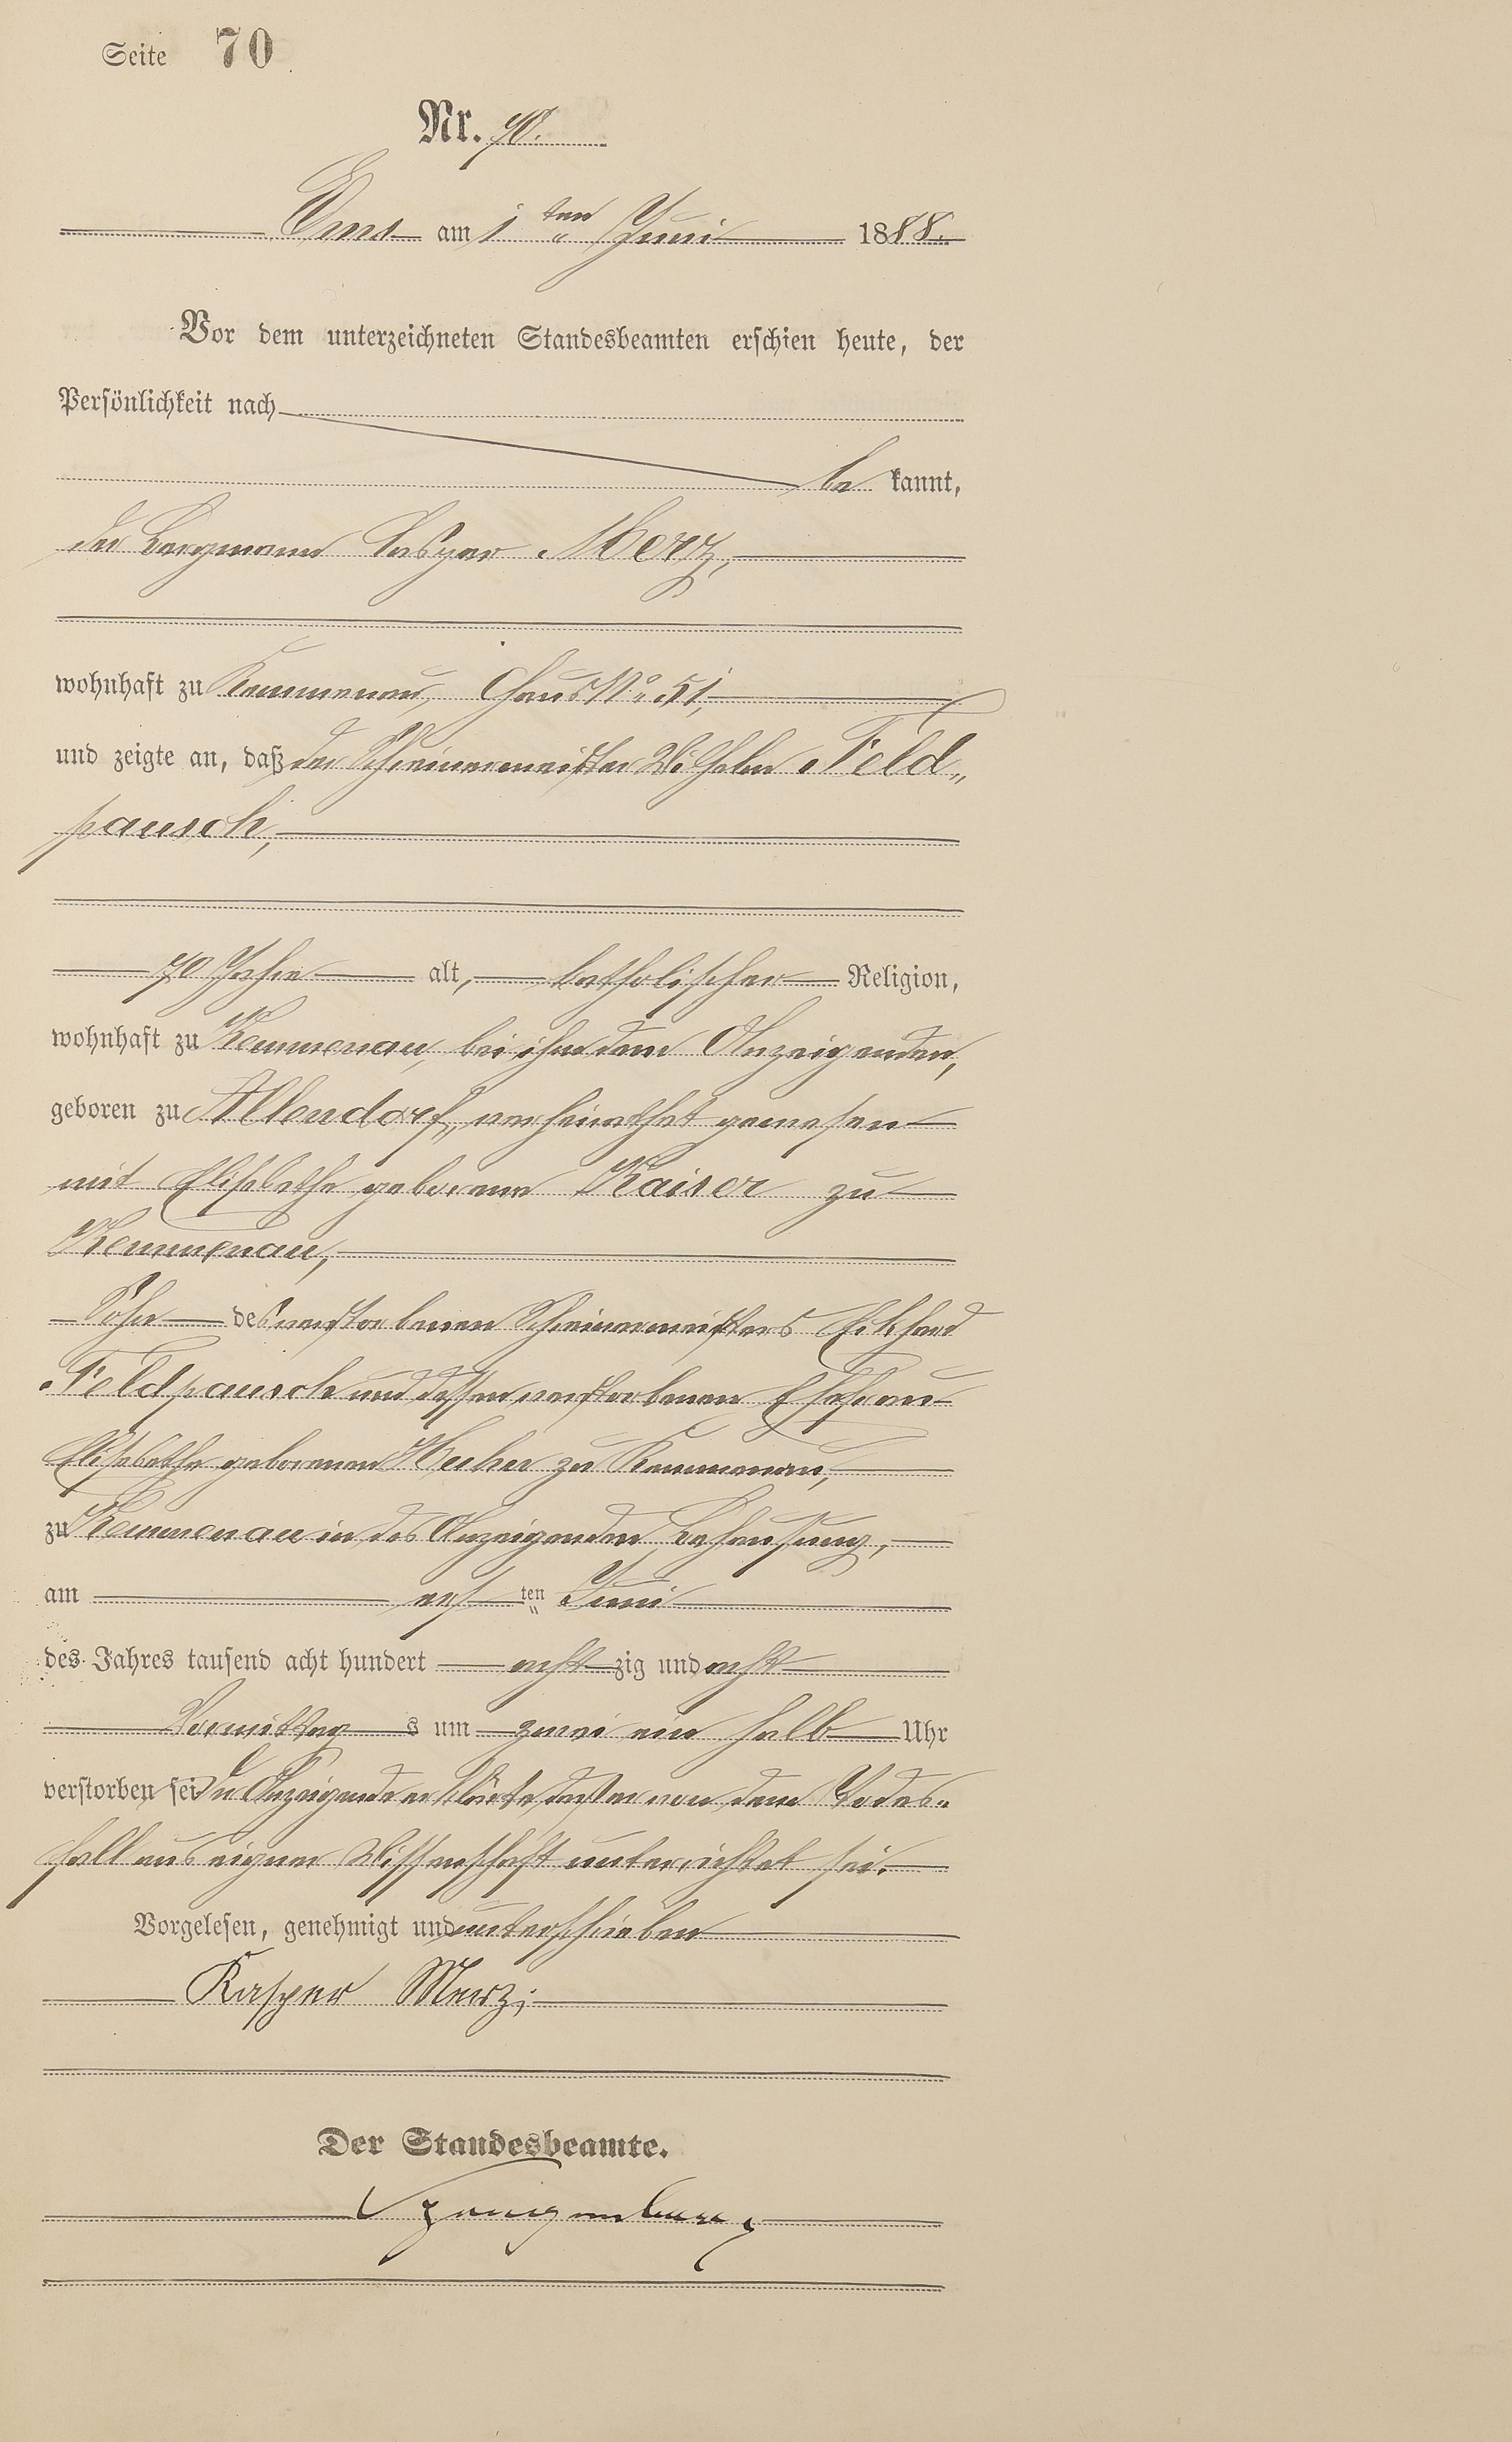 Seite 70
Nr. 70.
Ems am 1ten Juni 1888.
Vor dem unterzeichneten Standesbeamten erschien heute, der
Persönlichkeit nach
be kannt,
der Bergmann Caspar Merz,
wohnhaft zu Kemmenau, Haus No 51,
und zeigte an, daß der Schreinermeister Wilhelm Feld„
pausch,
70 Jahre alt, katholischer Religion,
wohnhaft zu Kemmenau, bei ihm dem Anzeigenden,
geboren zu Allendorf, verheirathet gewesen
mit Elisabethe geborene Kaiser zu
Kemmenau,
Sohn des verstorbenen Schreinermeisters Eckhard
Feldpausch und dessen verstorbenen Ehefrau
Elisabethe geborenen zu Kemmenau,
zu Kemmenau in des Anzeigenden Behausung,
am ersten Juni
des Jahres tausend acht hundert acht zig und acht
Vormittag s um zwei ein halb Uhr
verstorben sei Der Anzeigende erklärte daß er von dem Todes„
fall aus eigner Wissenschaft unterrichtet sei.
Vorgelesen, genehmigt und unterschrieben
Kasper Merz;
Der Standesbeamte.